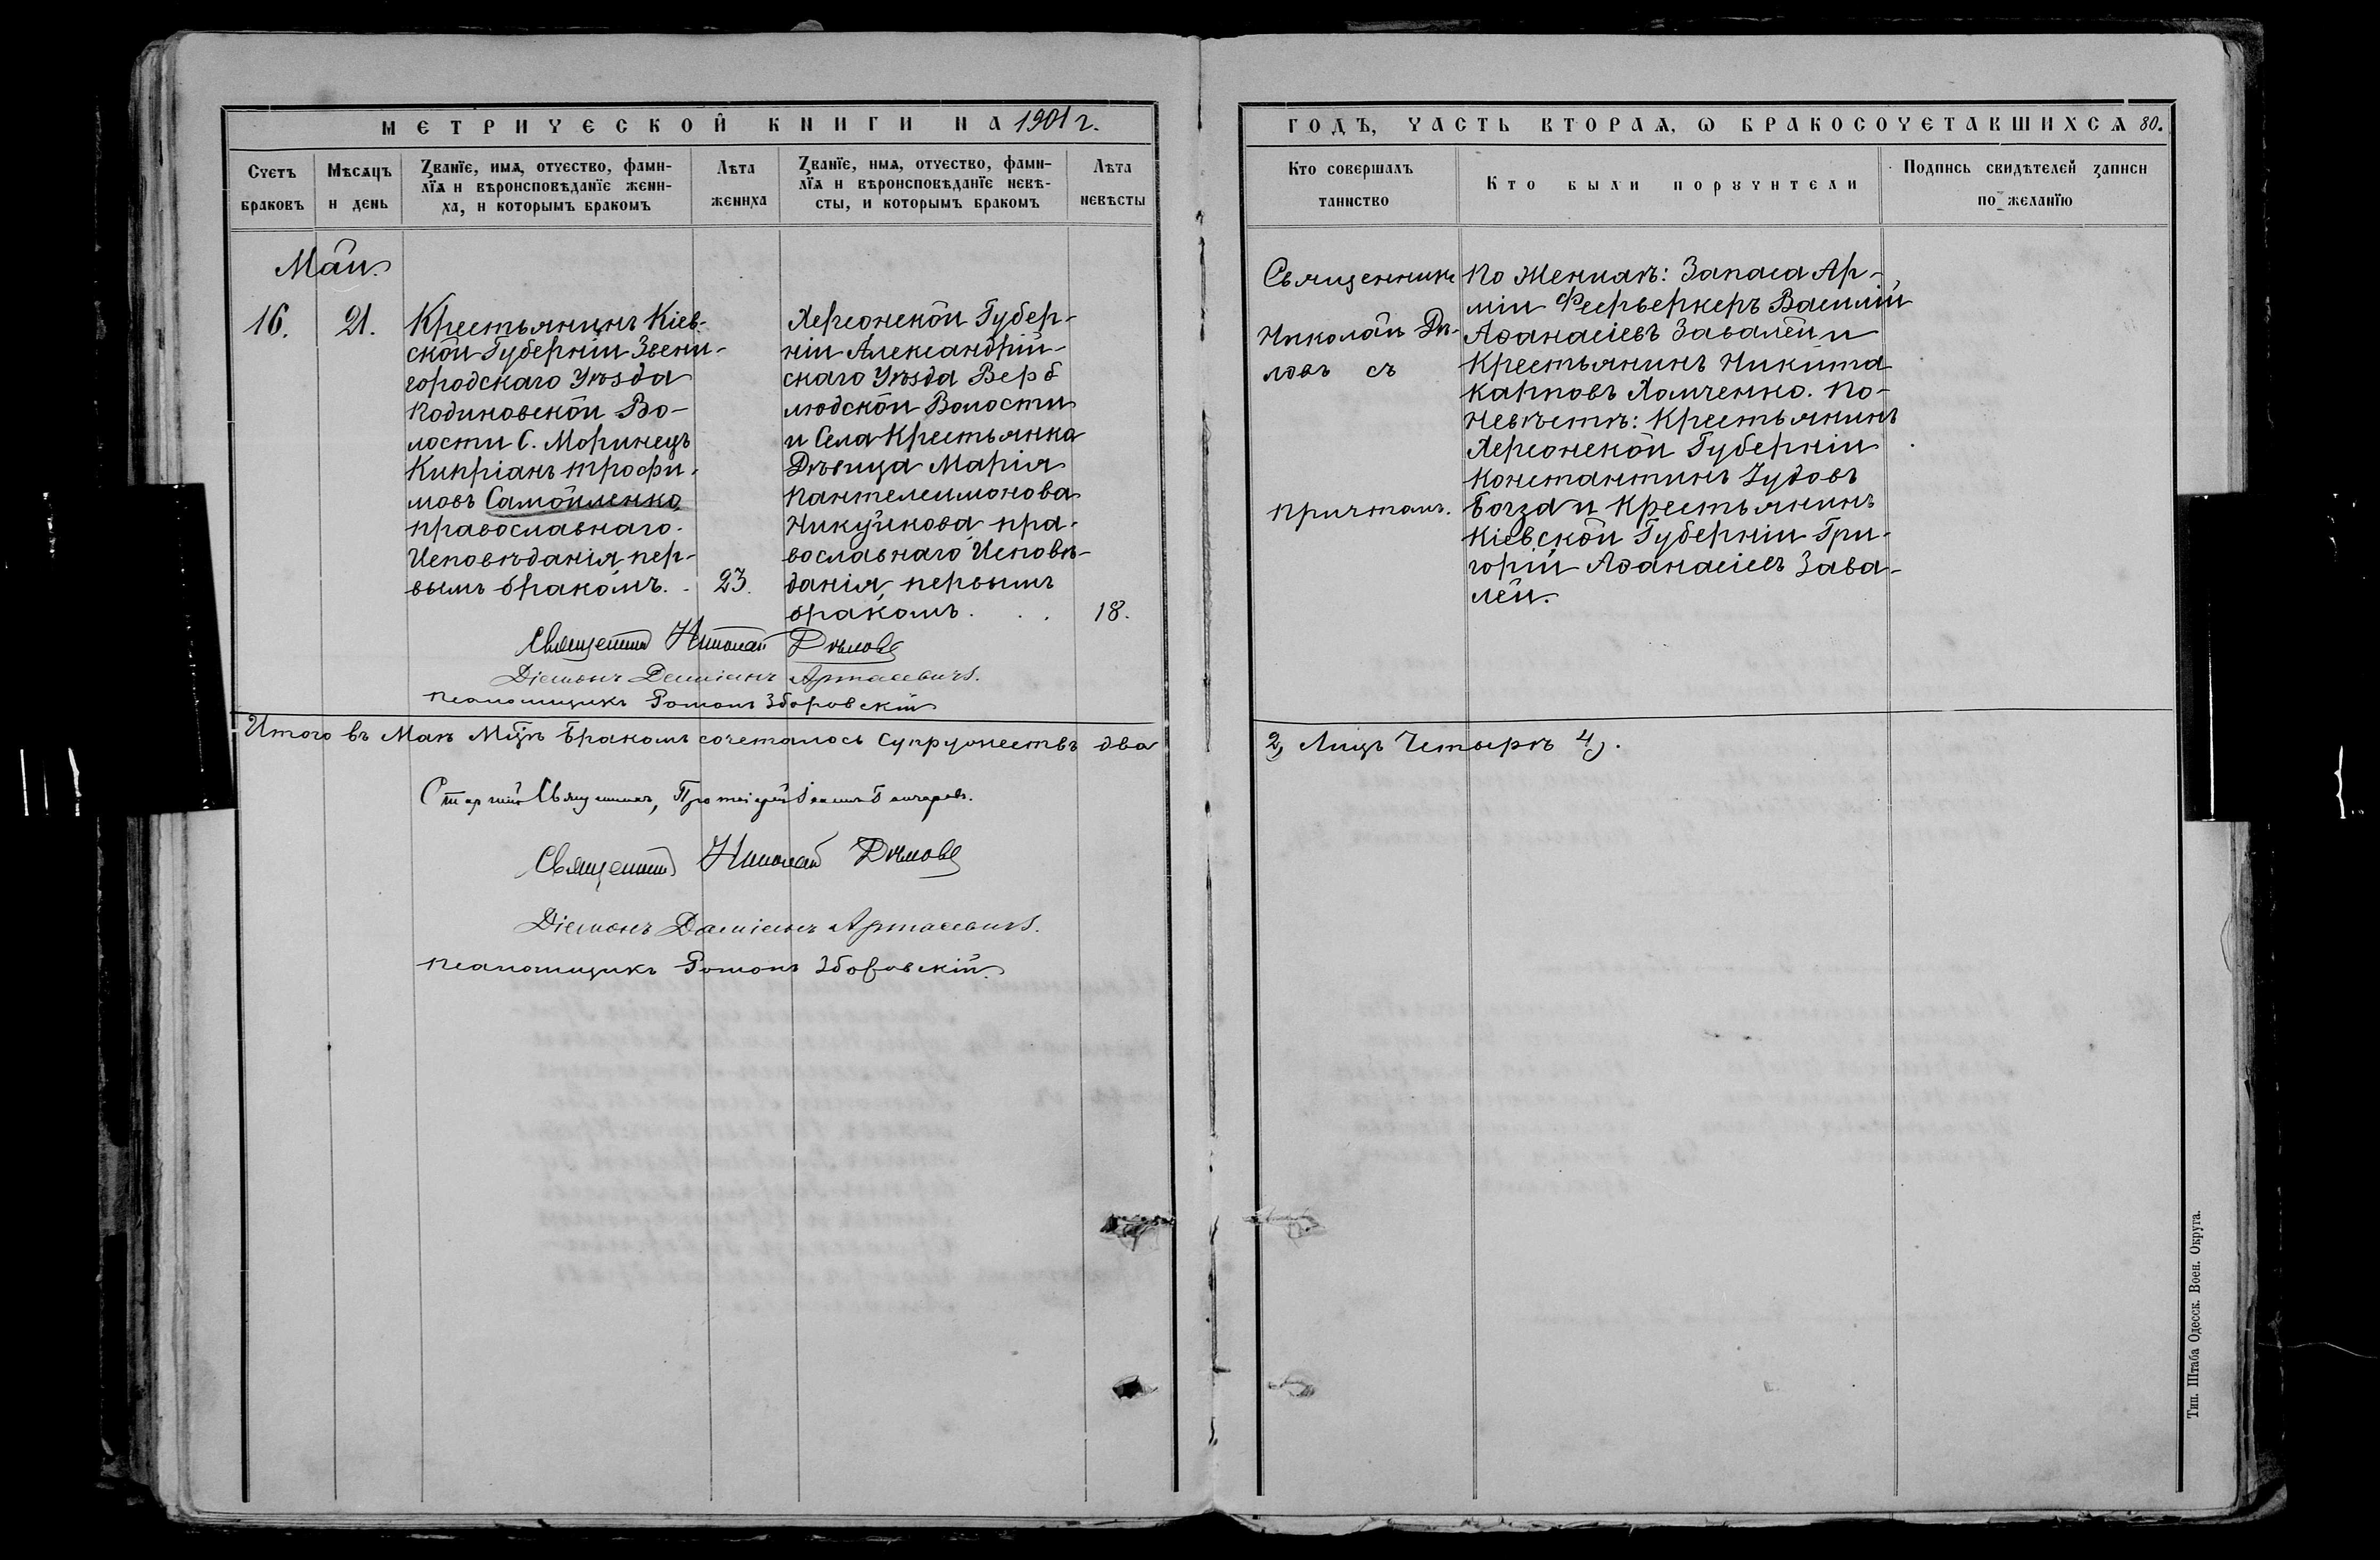 МЕТРИЧЕСКОЙ КНИГИ НА 1901 г.
Счетъ браковъ
Мѣсяцъ и день
Званїе, имѧ, отчество, фами-
лїѧ и вѣроисповѣданїе жени-
ха, и которымъ бракомъ
Лѣта жениха
Званїе, имѧ, отчество, фами-
лїѧ и вѣроисповѣданїе невѣ-
сты, и которымъ бракомъ
Лѣта невѣсты
Май
16.
21.
Крестьянинъ Кіев-
ской Губерніи Звени-
городскаго Уѣзда
Волости С. Моринецъ
Кипріанъ Трофи-
мовъ Самойленко
православнаго
Исповѣданія пер-
вымъ бракомъ.
23.
Херсонской Губер-
ніи Александрій-
скаго Уѣзда Верб
людской Волости
и Села Крестьянка
Дѣвица Марія
Пантелеимонова
пра-
вославнаго Исповѣ-
данія, первымъ
бракомъ.
18.
Священникъ Николай
Діаконъ Даміанъ
Псаломщикъ Романъ Зборовскій
Итого въ Маѣ Мцѣ Бракомъ сочеталось Супружествъ два
Старшій Священникъ, Протоіерей
Священникъ Николай
Діаконъ Даміанъ
Псаломщикъ Романъ Зборовскій.
ГОДЪ, ЧАСТЬ ВТОРАѦ, Ѡ БРАКОСОЧЕТАВШИХСѦ 80.
Кто совершалъ
таинство
Кто были порꙋчители
Подпись свидѣтелей записи
по желанїю
Священникъ
Николай Дѣ-
ловъ съ
Причтомъ.
По Женихѣ: Запаса Ар-
міи Феерверкеръ Василій
Аѳанасіевъ Завалей и
Крестьянинъ Никита
Карповъ Хомченко. По
Невѣстѣ: Крестьянинъ
Херсонской Губерніи
Константинъ
и Крестьянинъ
Кіевской Губерніи Гри-
горій Аѳанасіевъ Зава-
лей.
2, Лицъ Четырѣ 4).
Тип. Штаба Одесск. Воен. Округа.